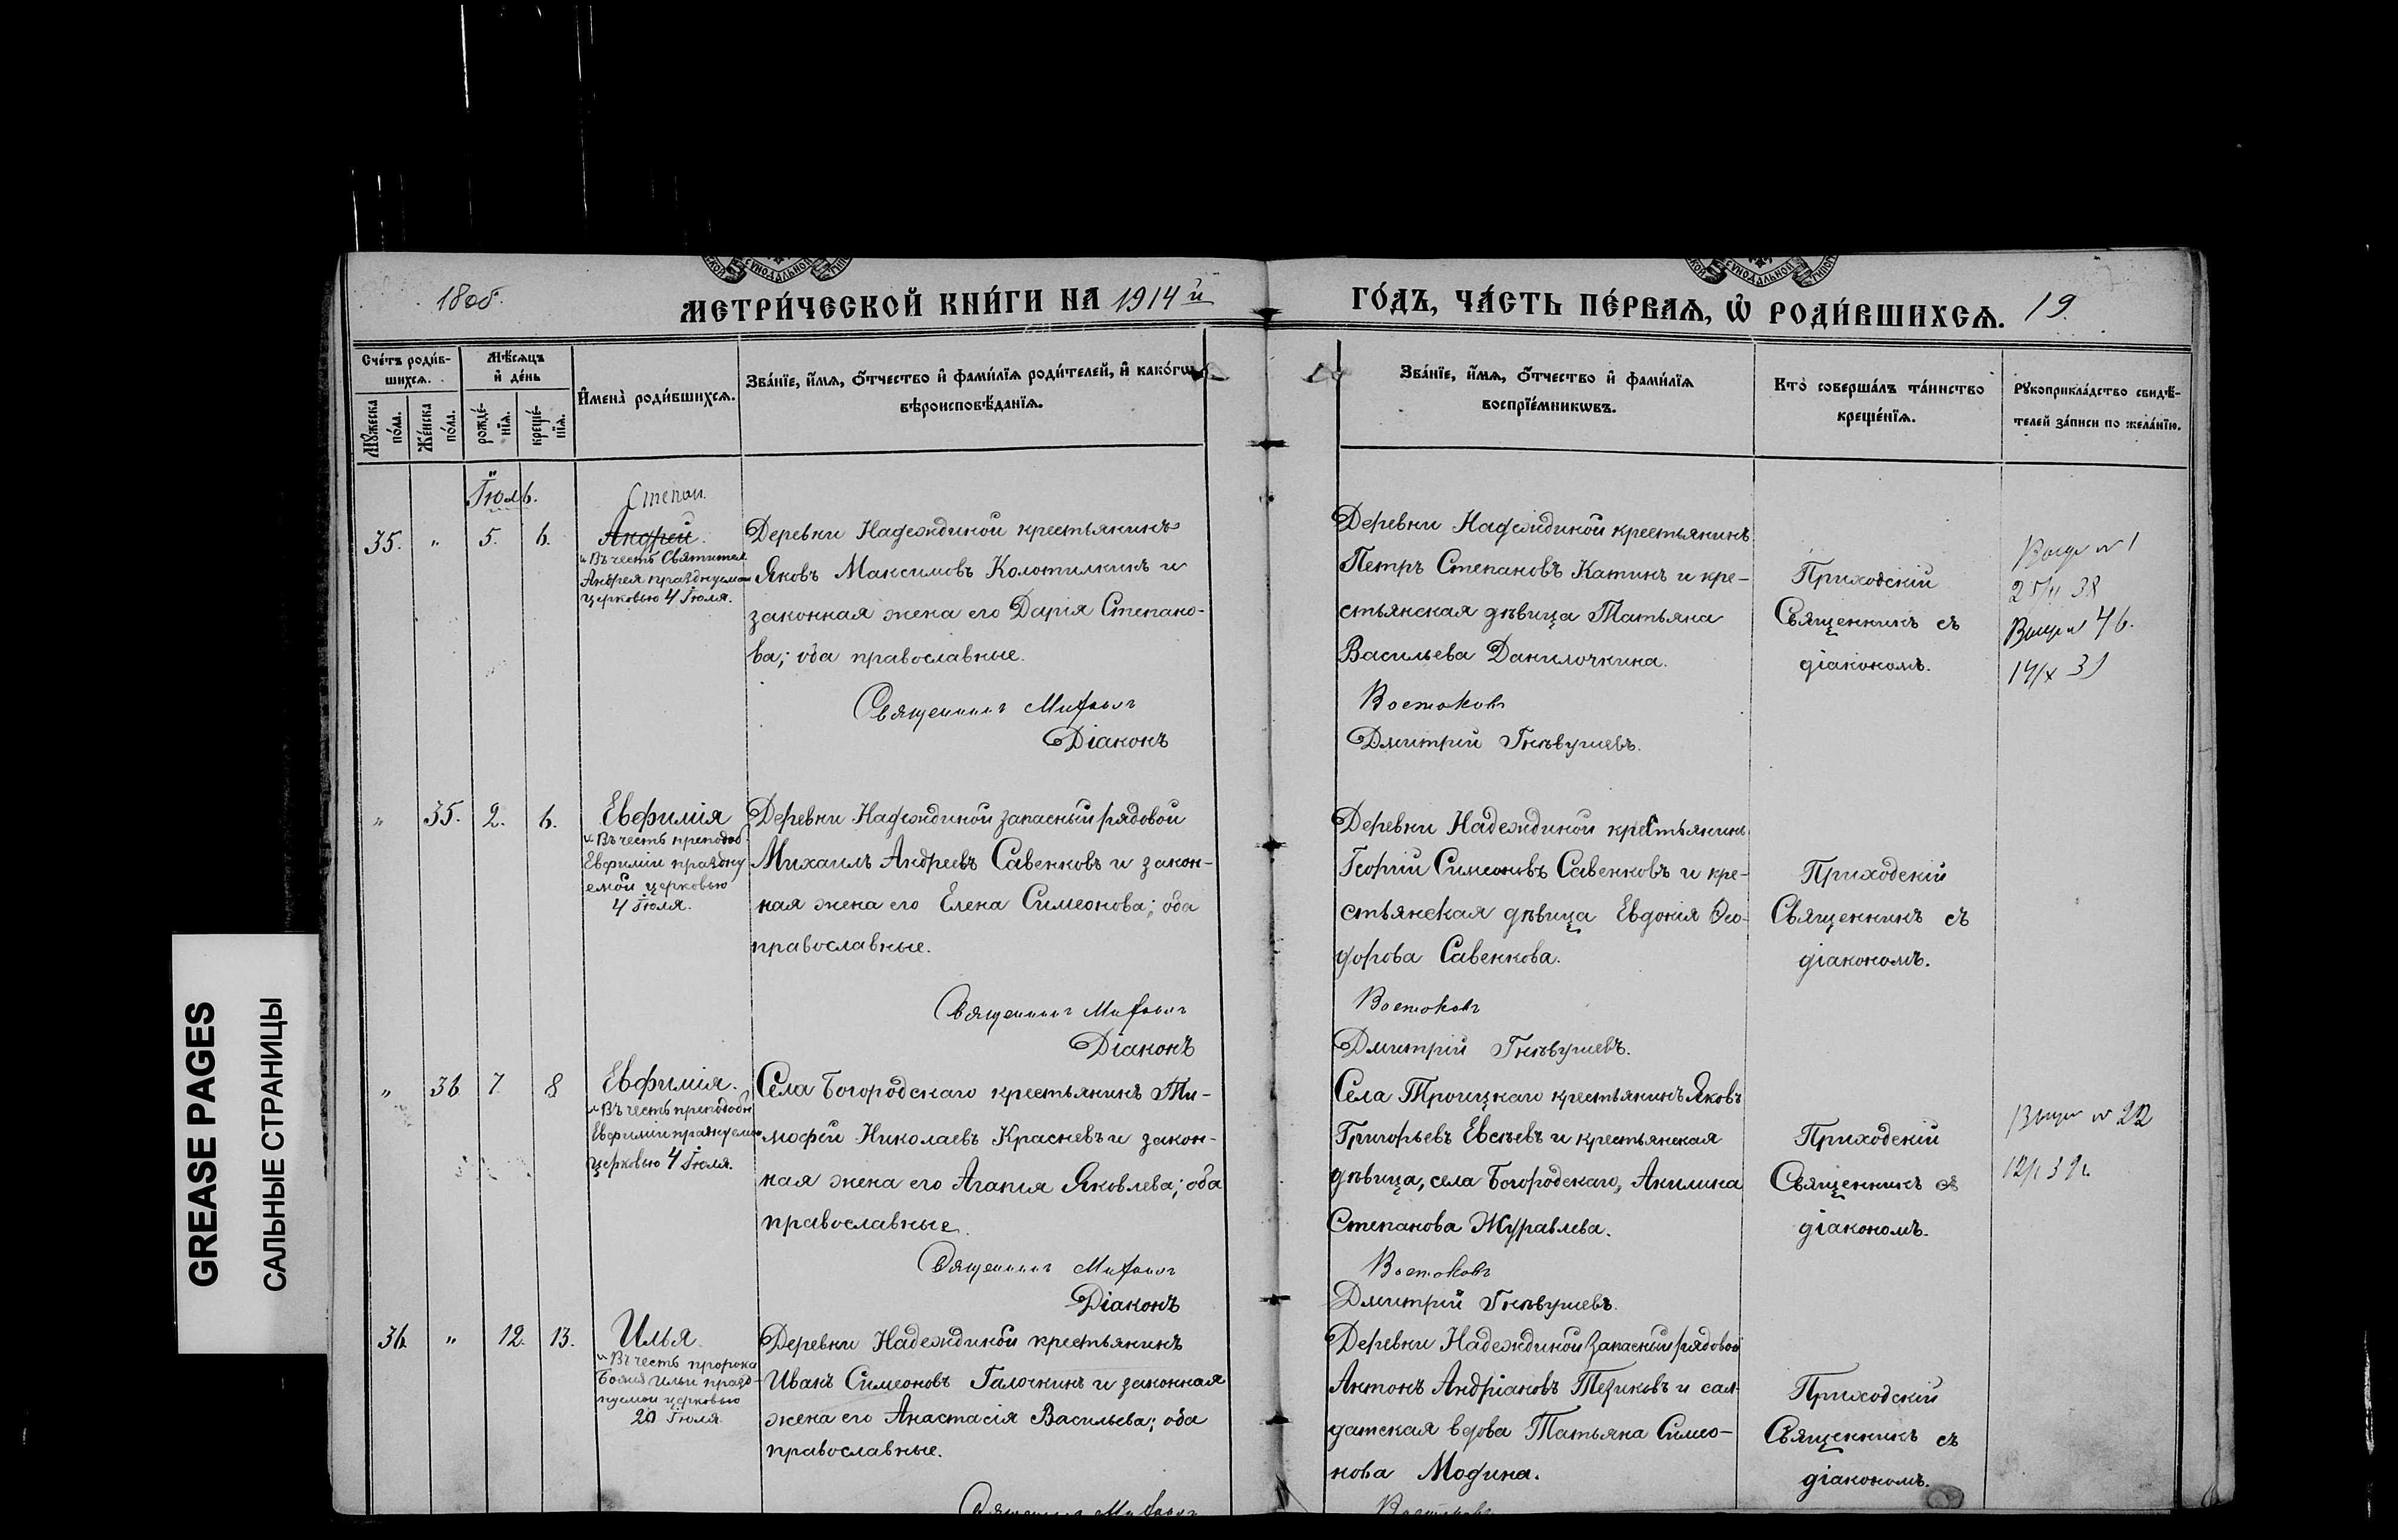 СѴНОДАЛЬНОЙ
СѴНОДАЛЬНОЙ
18об.
МЕТРИ́ЧЕСКОЙ КНИ́ГИ НА 1914й
ГО́ДЪ, ЧА́СТЬ ПЕ́РВАѦ, Ѡ҆ РОДИ́ВШИХСѦ. 19.
Сче́тъ роди́в-
шихсѧ.
Мѣ́сѧцъ
и҆ де́нь
Мꙋ́жеска
по́ла.
Же́нска
по́ла.
рожде́-
нїѧ.
креще́-
нїѧ.
И҆мена̀ роди́вшихсѧ.
Зва́нїе, и҆́мѧ, ѻ҆́тчество и҆ фами́лїѧ роди́телей, и҆ како́гѡ
вѣроисповѣ́данїѧ.
Зва́нїе, и҆́мѧ, ѻ҆́тчество и҆ фами́лїѧ
воспрїе́мникѡвъ.
Кто̀ соверша́лъ та́инство
креще́нїѧ.
Рꙋкоприкла́дство свидѣ́-
телей за́писи по жела́нїю.
Іюль.
Степан.
35. " 5. 6. Андрей.
"Въ честь Святителя
Андрея празднуемаго
церковью 4 Іюля.
Деревни Надеждиной крестьянинъ
Яковъ Максимовъ Колотилкинъ и
законная жена его Дарія Степано-
ва; оба православные.
Священникъ
Діаконъ
Деревни Надеждиной крестьянинъ
Петръ Степановъ Катинъ и кре-
стьянская дѣвица Татьяна
Васильева Данилочкина.
Востоковъ
Дмитрій Гнѣвушевъ.
Приходскій
Священникъ съ
діакономъ.
38
46.
" 35. 2. 6. Евфимія
"Въ честь преподоб.
Евфиміи праздну
емой церковью
4 Іюля.
Деревни Надеждиной запасный рядовой
Михаилъ Андреевъ Савенковъ и закон-
ная жена его Елена Симеонова; оба
православные.
Священникъ
Діаконъ
Деревни Надеждиной крестьянинъ
Георгій Симеоновъ Савенковъ и кре-
стьянская дѣвица Евдокія Ѳео-
дорова Савенкова.
Востоковъ
Дмитрій Гнѣвушевъ.
Приходскій
Священникъ съ
діакономъ.
" 36 7. 8 Евфимія.
"Въ честь преподобн
Евфиміи празднуемой
церковью 4 Іюля.
Села Богородскаго крестьянинъ Ти-
мофей Николаевъ Красневъ и закон-
ная жена его Агапія Яковлева; оба
православные.
Священникъ
Діаконъ
Села Троицкаго крестьянинъ Яковъ
Григорьевъ Евсѣевъ и крестьянская
дѣвица, села Богородскаго, Акилина
Степанова Журавлева.
Востоковъ
Дмитрій Гнѣвушевъ.
Приходскій
Священникъ съ
діакономъ.
22
36. " 12. 13. Илья.
"Въ честь пророка
Божія Ильи празд-
нуемой церковью
20 Іюля
Деревни Надеждиной крестьянинъ
Иванъ Симеоновъ Галочкинъ и законная
жена его Анастасія Васильева; оба
православные.
Деревни Надеждиной запасный рядовой
Антонъ Андріановъ Тезиковъ и сол-
датская вдова Татьяна Симео-
нова Модина.
Приходскій
Священникъ съ
діакономъ.
GREASE PAGES
САЛЬНЫЕ СТРАНИЦЫ